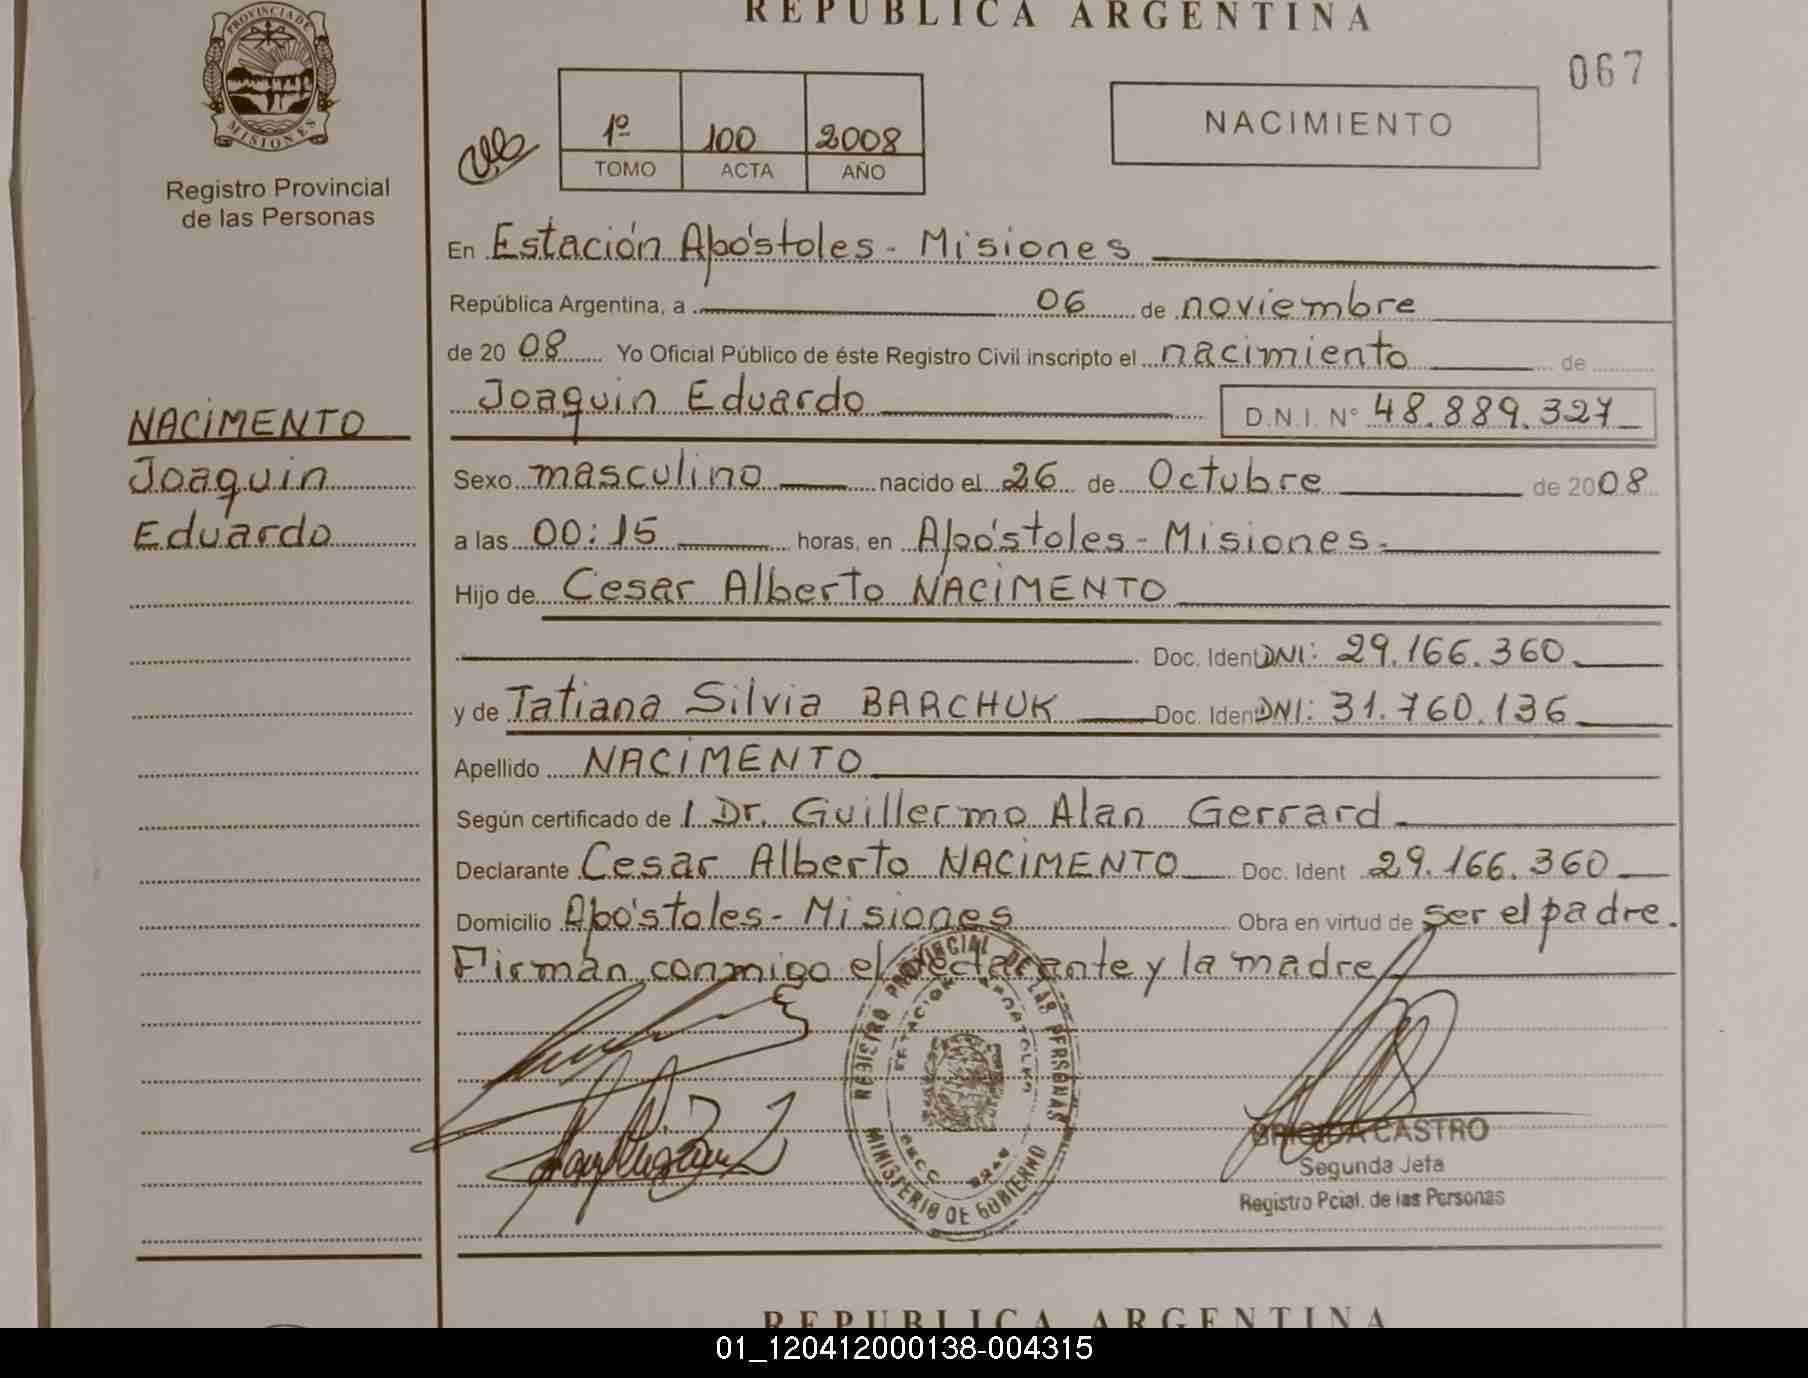 REPUBLICA ARGENTINA
PROVINCIA DE
MISIONES
Registro Provincial
de las Personas
067
1º 100 2008
TOMO ACTA AÑO
NACIMIENTO
En Estación Apóstoles - Misiones
República Argentina, a 06 de noviembre
de 20 08 Yo Oficial Público de éste Registro Civil inscripto el nacimiento de
Joaquin Eduardo D.N.I. Nº 48.889.327
NACIMENTO
Joaquin
Eduardo
Sexo masculino nacido el 26 de Octubre de 2008
a las 00:15 horas, en Apóstoles - Misiones.
Hijo de Cesar Alberto NACIMENTO
Doc. Ident DNI: 29.166.360
y de Tatiana Silvia BARCHUK Doc. Ident DNI: 31.760.136
Apellido NACIMENTO
Según certificado de / Dr. Guillermo Alan Gerrard
Declarante Cesar Alberto NACIMENTO Doc. Ident 29.166.360
Domicilio Apóstoles - Misiones Obra en virtud de ser el padre.
Firman conmigo el declarante y la madre
REGISTRO PROVINCIAL DE LAS PERSONAS
MINISTERIO DE GOBIERNO
BRIGIDA CASTRO
Segunda Jefa
Registro Pcial. de las Personas
REPUBLICA ARGENTINA
01_120412000138-004315